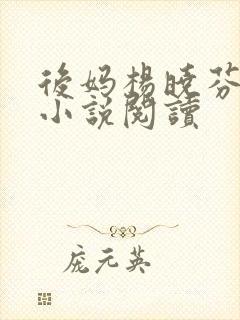 後妈楊晓芬
小説閱讀
庞元英